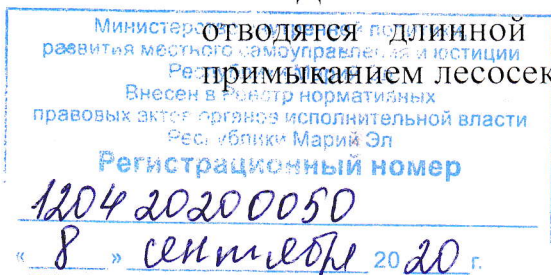 отводятся длинной
примыканием лесосек
Министерство внутренней политики,
развития местного самоуправления и юстиции
Республики Марий Эл
Внесен в реестр нормативных
правовых актов органов исполнительной власти
Республики Марий Эл
Регистрационный номер
120420200050
« 8 » сентября 20 20 г.